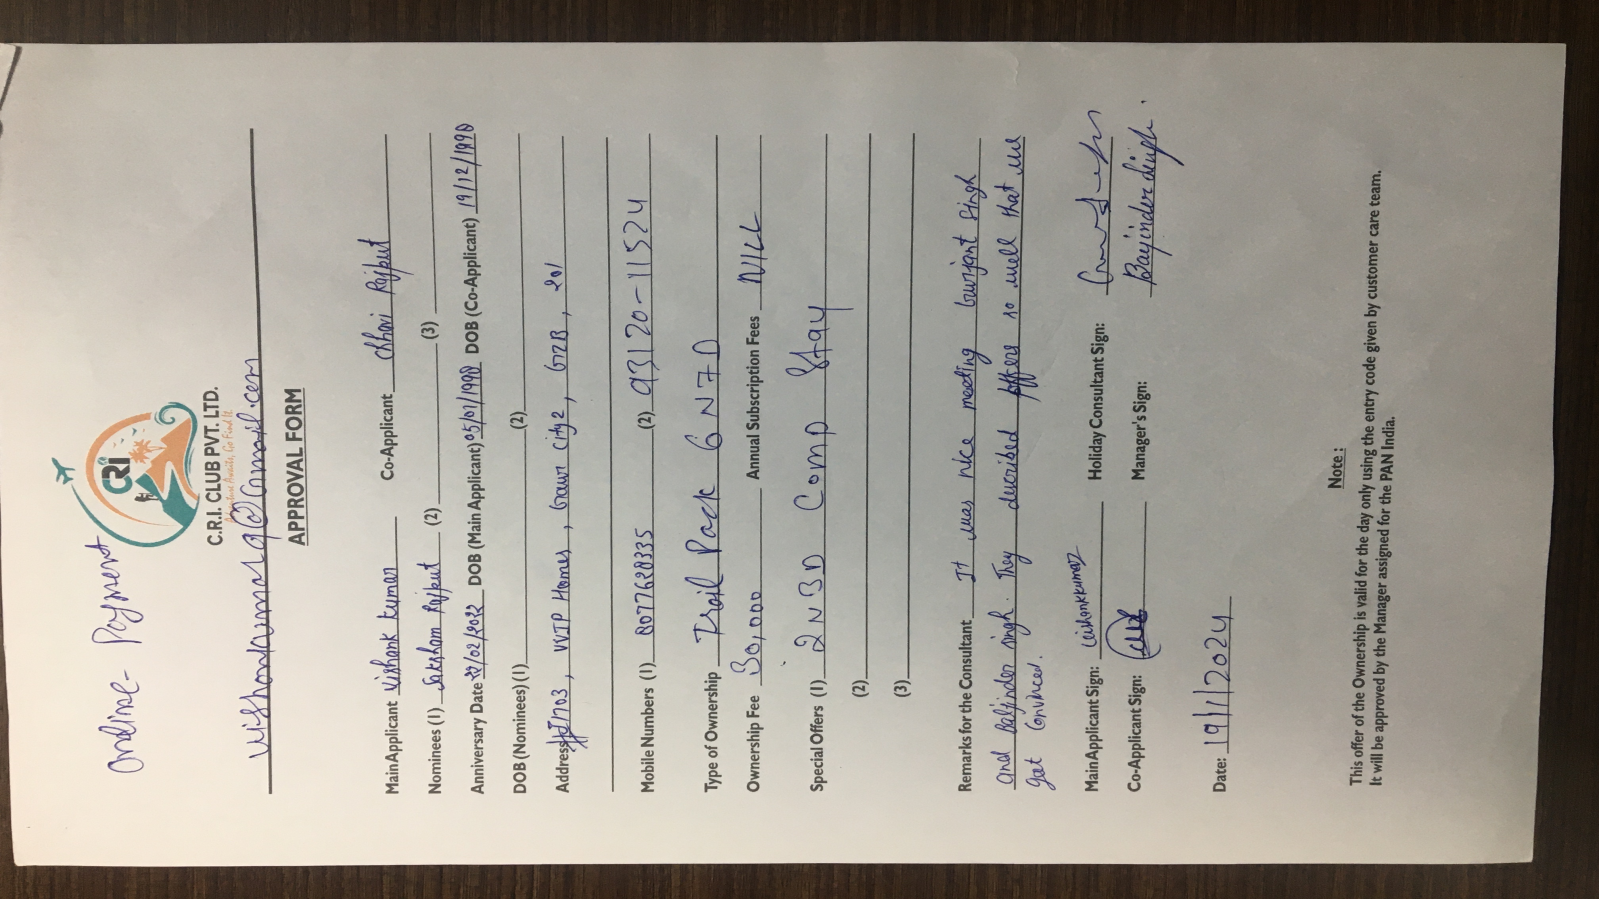 Online- Payment
CRI
C.R.I. CLUB PVT. LTD.
Adventure Awaits, Go Find It.
vishankumar9@Gmail.com
APPROVAL FORM
Main Applicant Vishank Kumar Co-Applicant Chhavi Rajput
Nominees (1) Saksham Rajput (2) (3)
Anniversary Date /02/2022 DOB (Main Applicant) 05/07/1990 DOB (Co-Applicant) 19/12/1990
DOB (Nominees) (1) (2)
Address 1703, VVIP Homes, Gaur City2, GZB, 201
Mobile Numbers (1) 8077628335 (2) 93120-11524
Type of Ownership Trail Pack 6N7D
Ownership Fee 30,000 Annual Subscription Fees NILL
Special Offers (1) 2N3D Comp Stay
(2)
(3)
Remarks for the Consultant It was nice meeting Gurjant Singh
and Baljinder Singh. They described offers so well that we
get Convinced.
Main Applicant Sign: Vishankkumar Holiday Consultant Sign:
Co-Applicant Sign: Manager's Sign: Baljinder Singh.
Date: 19/1/2024
Note :
This offer of the Ownership is valid for the day only using the entry code given by customer care team.
It will be approved by the Manager assigned for the PAN India.